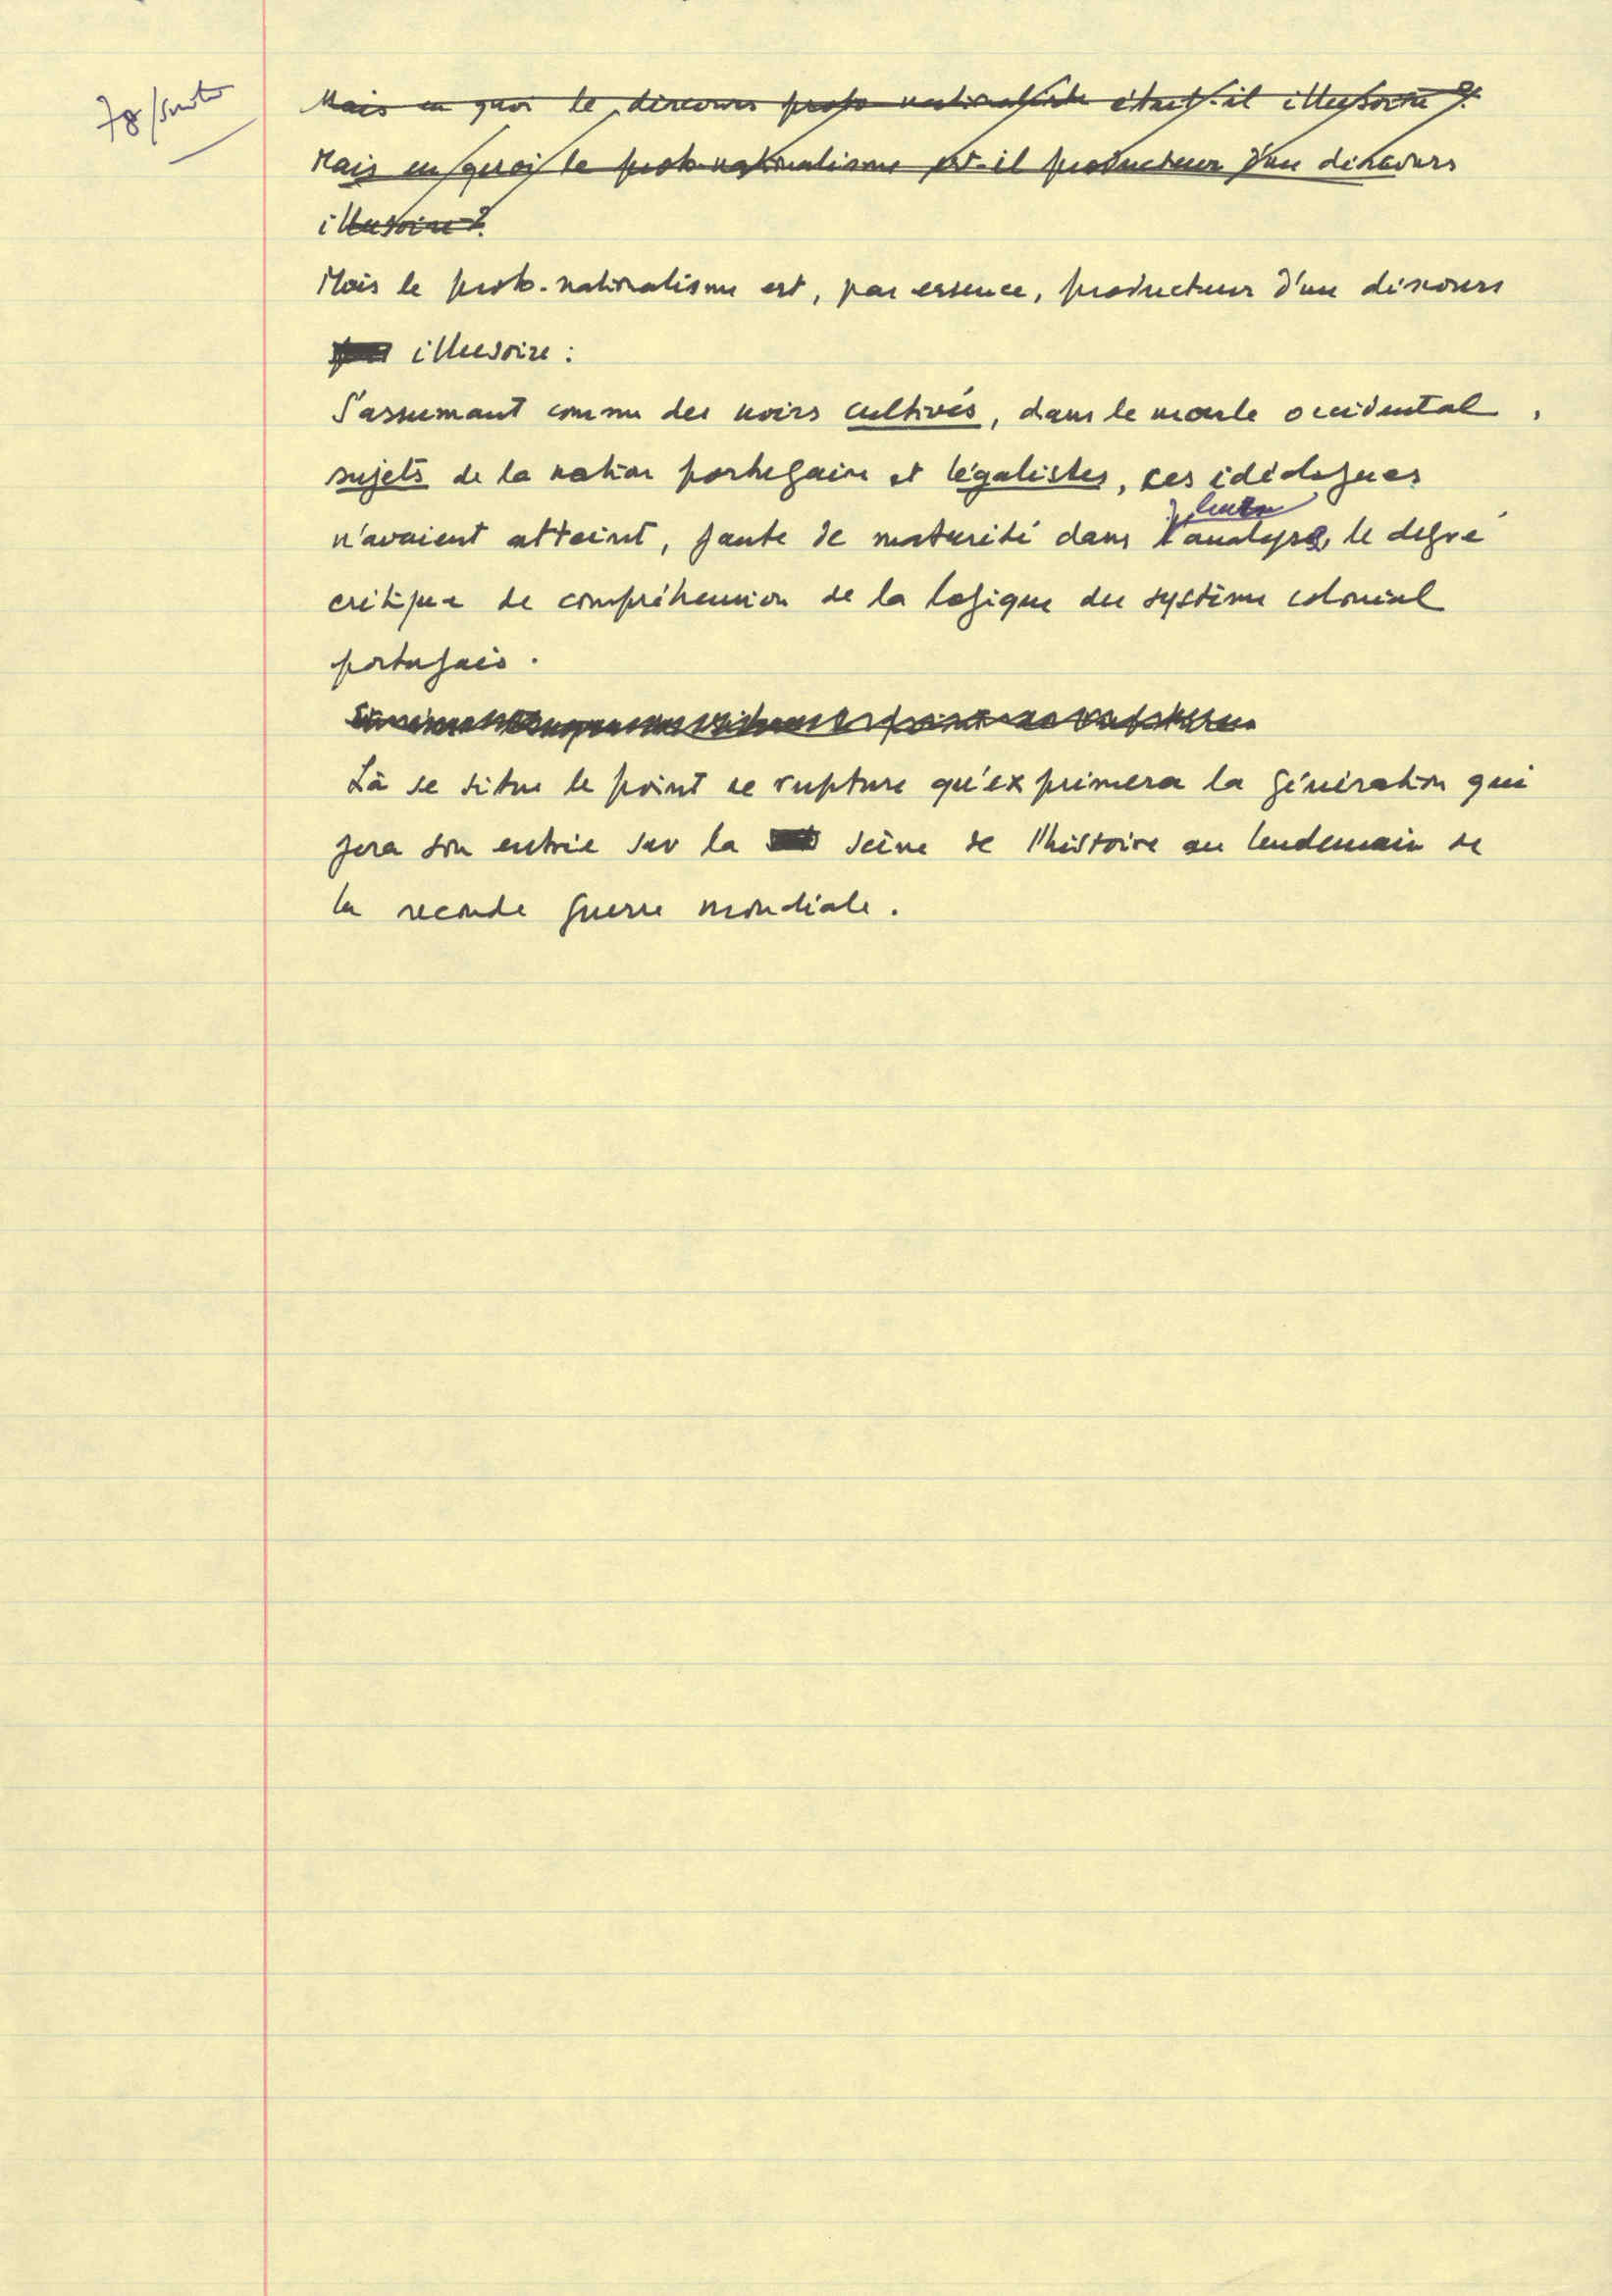 78/suite
Mais en quoi le discours proto nationaliste était-il illusoire ?
Mais en quoi le proto-nationalisme est-il producteur d'un discours
illusoire ?
Mais le proto-nationalisme est, par essence, producteur d'un discours
illusoire :
S'assumant comme des noirs cultivés, dans le monde occidental,
sujets de la nation portugaise et légalistes, ces idéologues
leurs
n'avaient atteint, faute de maturité dans l'analyse, le degré
critique de compréhension de la logique du système colonial
portugais.
Là se situe le point de rupture qu'exprimera la génération qui
fera son entrée sur la scène de l'histoire au lendemain de
la seconde guerre mondiale.